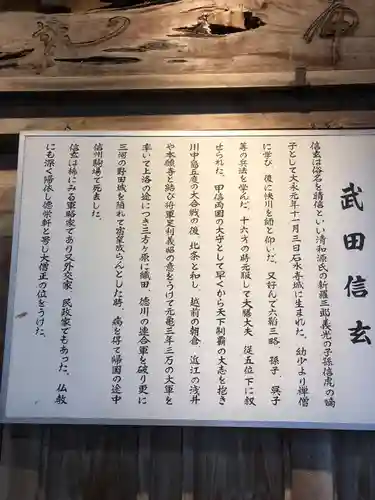 武田信玄
信玄は俗名を晴信といい清和源氏の新羅三郎義光の子孫信虎の嫡
子として大永元年十一月三日石水寺城に生まれた。幼少より禅僧
に学び 後に快川を師と仰いだ。又好んで六韜三略 孫子 呉子
等の兵法を学んだ。十六才の時元服して大膳大夫 従五位下に叙
せられた。甲信両国の太守として早くから天下制覇の大志を抱き
川中島五度の大合戦の後、北条と和し、越前の朝倉、近江の浅井
や本願寺と結び将軍足利義昭の意をうけて元亀三年三万の大軍を
率いて上洛の途につき三方ヶ原に織田、徳川の連合軍を破り更に
三河の野田城を陥れて宿望成らんとした時、病を得て帰国の途中
信州駒場で死去した。
信玄は稀にみる軍略家であり又外交家、民政家でもあった。仏教
にも深く帰依し徳栄軒と号し大僧正の位をうけた。